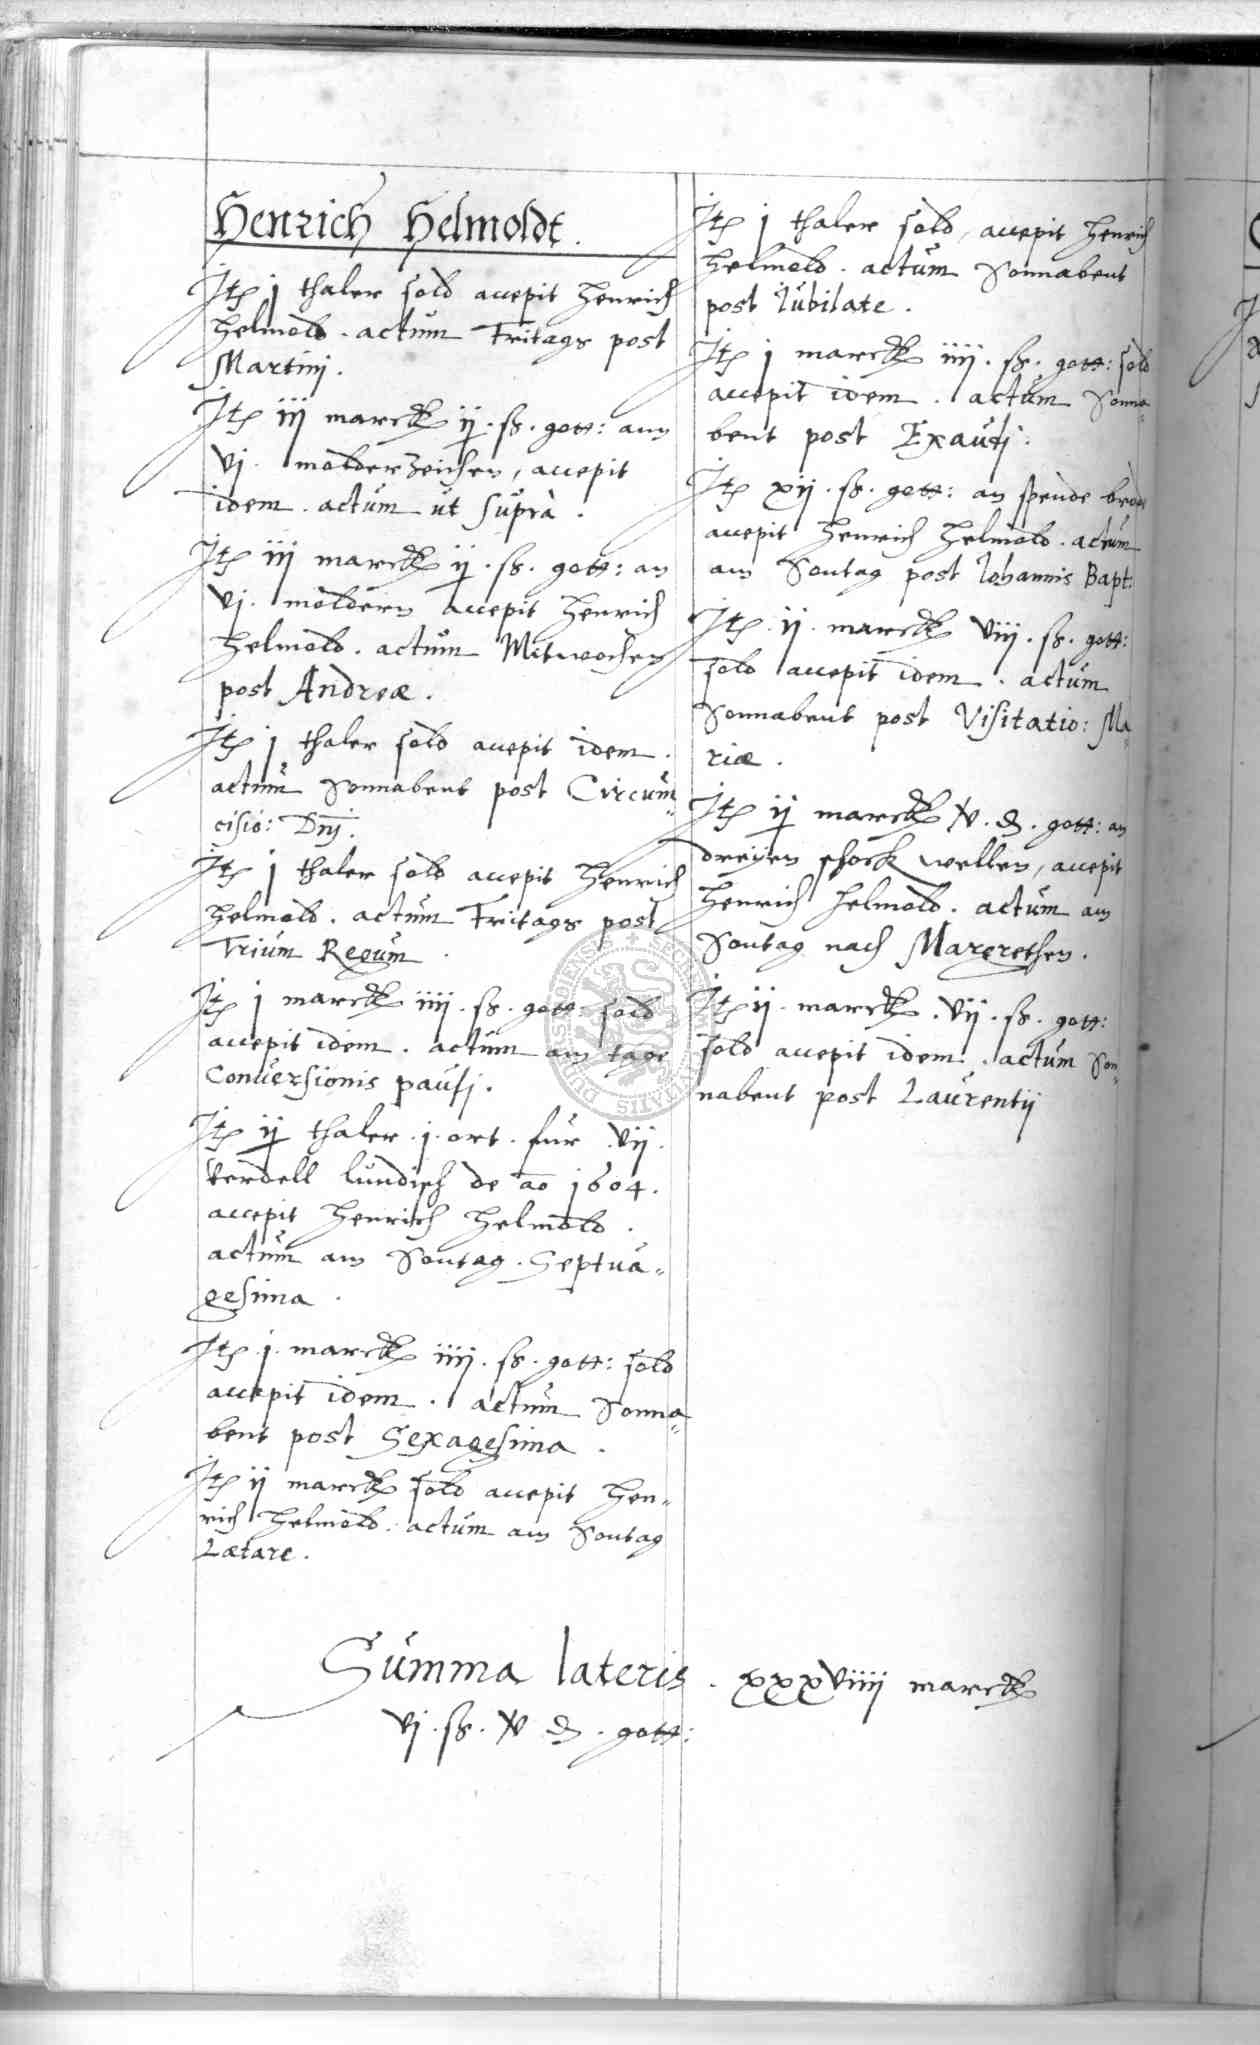 Henrich Helmoldt.
Itē j thaler sold accepit Henrich
Helmold. actum Fritags post
Martinj.
Itē iij marck ij. ß. gott: ann
vj. molderzeichen, accepit
idem. actum ut suprà.
Itē iij marck ij. ß. gott: an
vj. moldern accepit Henrich
Helmold. actum Mitwochen
post Andreæ.
Itē j thaler sold accepit idem.
actum Sonnabent post Circum„
cisio: Dnj.
Itē j thaler sold accepit Henrich
Helmold. actum Fritags post
Trium Regum.
Itē j marck iiij. ß. gott: sold
accepit idem. actum am tage
Conversionis paulj.
Itē ij thaler. j. ort. für vij.
verdell lündisch de ao 1604.
accepit Henrich Helmold.
actum am Sontag. Septua„
gesima.
Itē. j. marck iiij. ß. gott: sold
accepit idem. actum Sonna„
bent post Sexagesima.
Itē ij marck sold accepit Hen„
rich Helmold. actum am Sontag
Lætare.
Itē j thaler sold, accepit Henrich
Helmold. actum Sonnabent
post Jubilate.
Itē j marck iiij. ß. gott: sold
accepit idem. actum Sonna„
bent post Exaudj.
Itē xij. ß. gott: an spende brodt
accepit Henrich Helmold. actum
am Sontag post Johannis Bapt:
Itē. ij. marck viij. ß. gott:
sold accepit idem. actum
Sonnabent post Visitatio: Ma„
riæ.
Itē ij marck v. ₰. gott: an
dreyen schock wellen, accepit
Henrich Helmold. actum am
Sontag nach Margrethen.
Itē ij. marck. vij. ß. gott:
sold accepit idem. actum Son„
nabent post Laurentij
Summa lateris. xxxviiij marck
vj. ß. v ₰. gott: